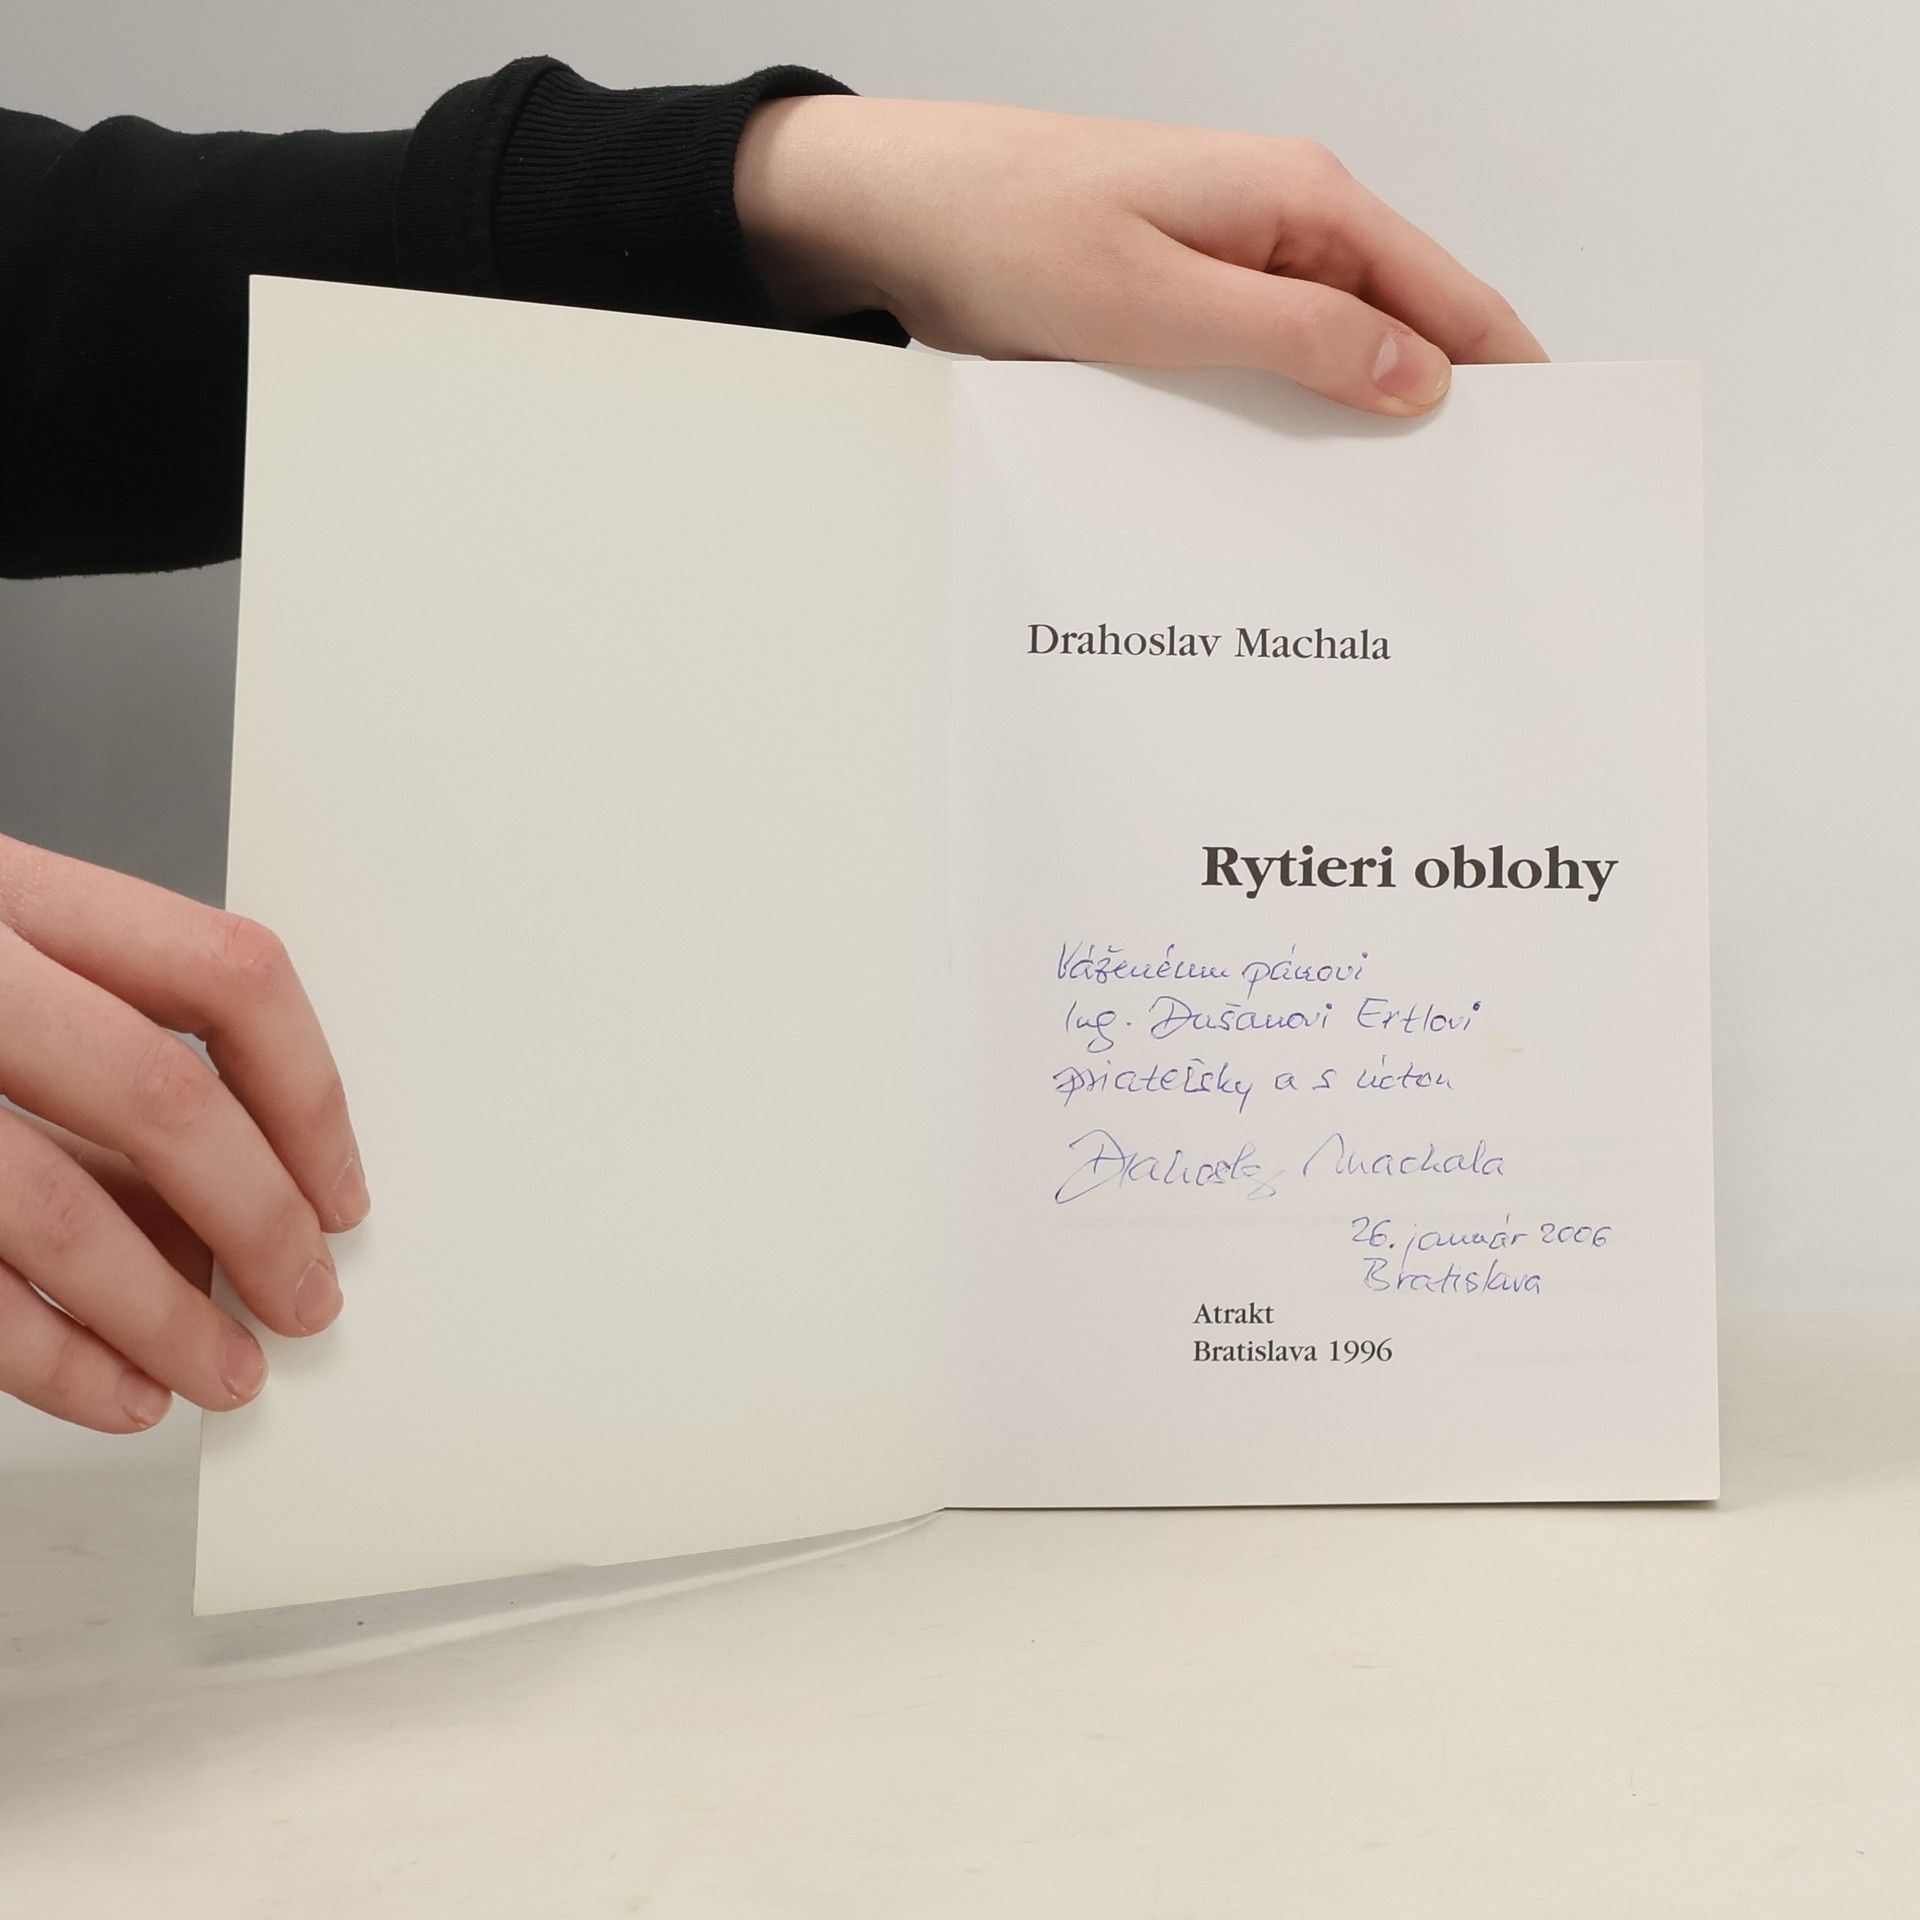 Drahoslav Machala
Rytieri oblohy
Váženému pánovi
Ing. Dušanovi Ertlovi
priateľsky a s úctou
Drahoslav Machala
26. január 2006
Bratislava
Atrakt
Bratislava 1996